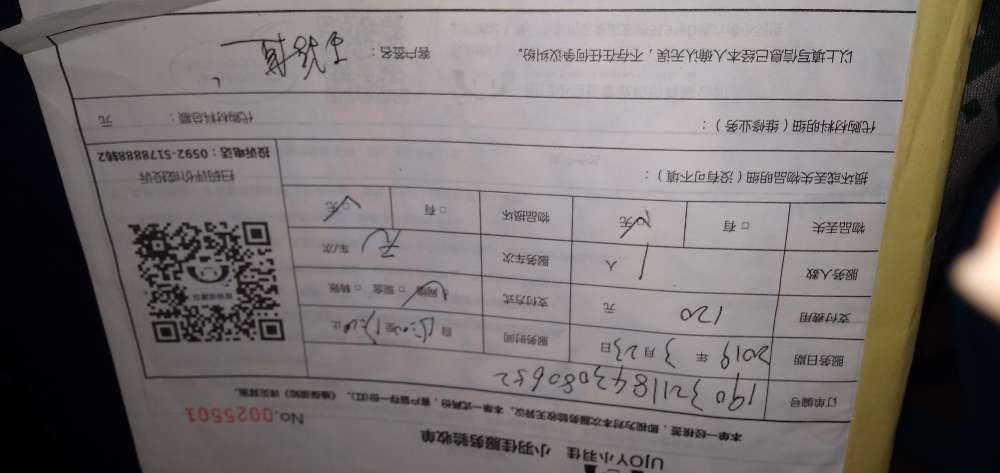 UJOY小羽佳 小羽佳服务验收单
No.0025501
本单一经模签，即视为对本次服务验收无异议。本单一式两份，客户留存一份(红)。《维保须知》详见背面。
订单编号 1903211843080652
服务日期 2019 年 3 月 23 日 服务时间 自 至 止
支付费用 120 元 支付方式 网络 □ 现金 □ 转账
服务人数 1 人 服务车次 无 车/次
物品丢失 □ 有 无 物品损坏 □ 有 □ 无
扫码评价或投诉
投诉电话：0592-5178888转2
损坏或丢失物品明细（没有可不填）：
代购材料明细（维修业务）： 代购材料总额： 元
以上填写信息已经本人确认无误，不存在任何争议纠纷。 客户签名：